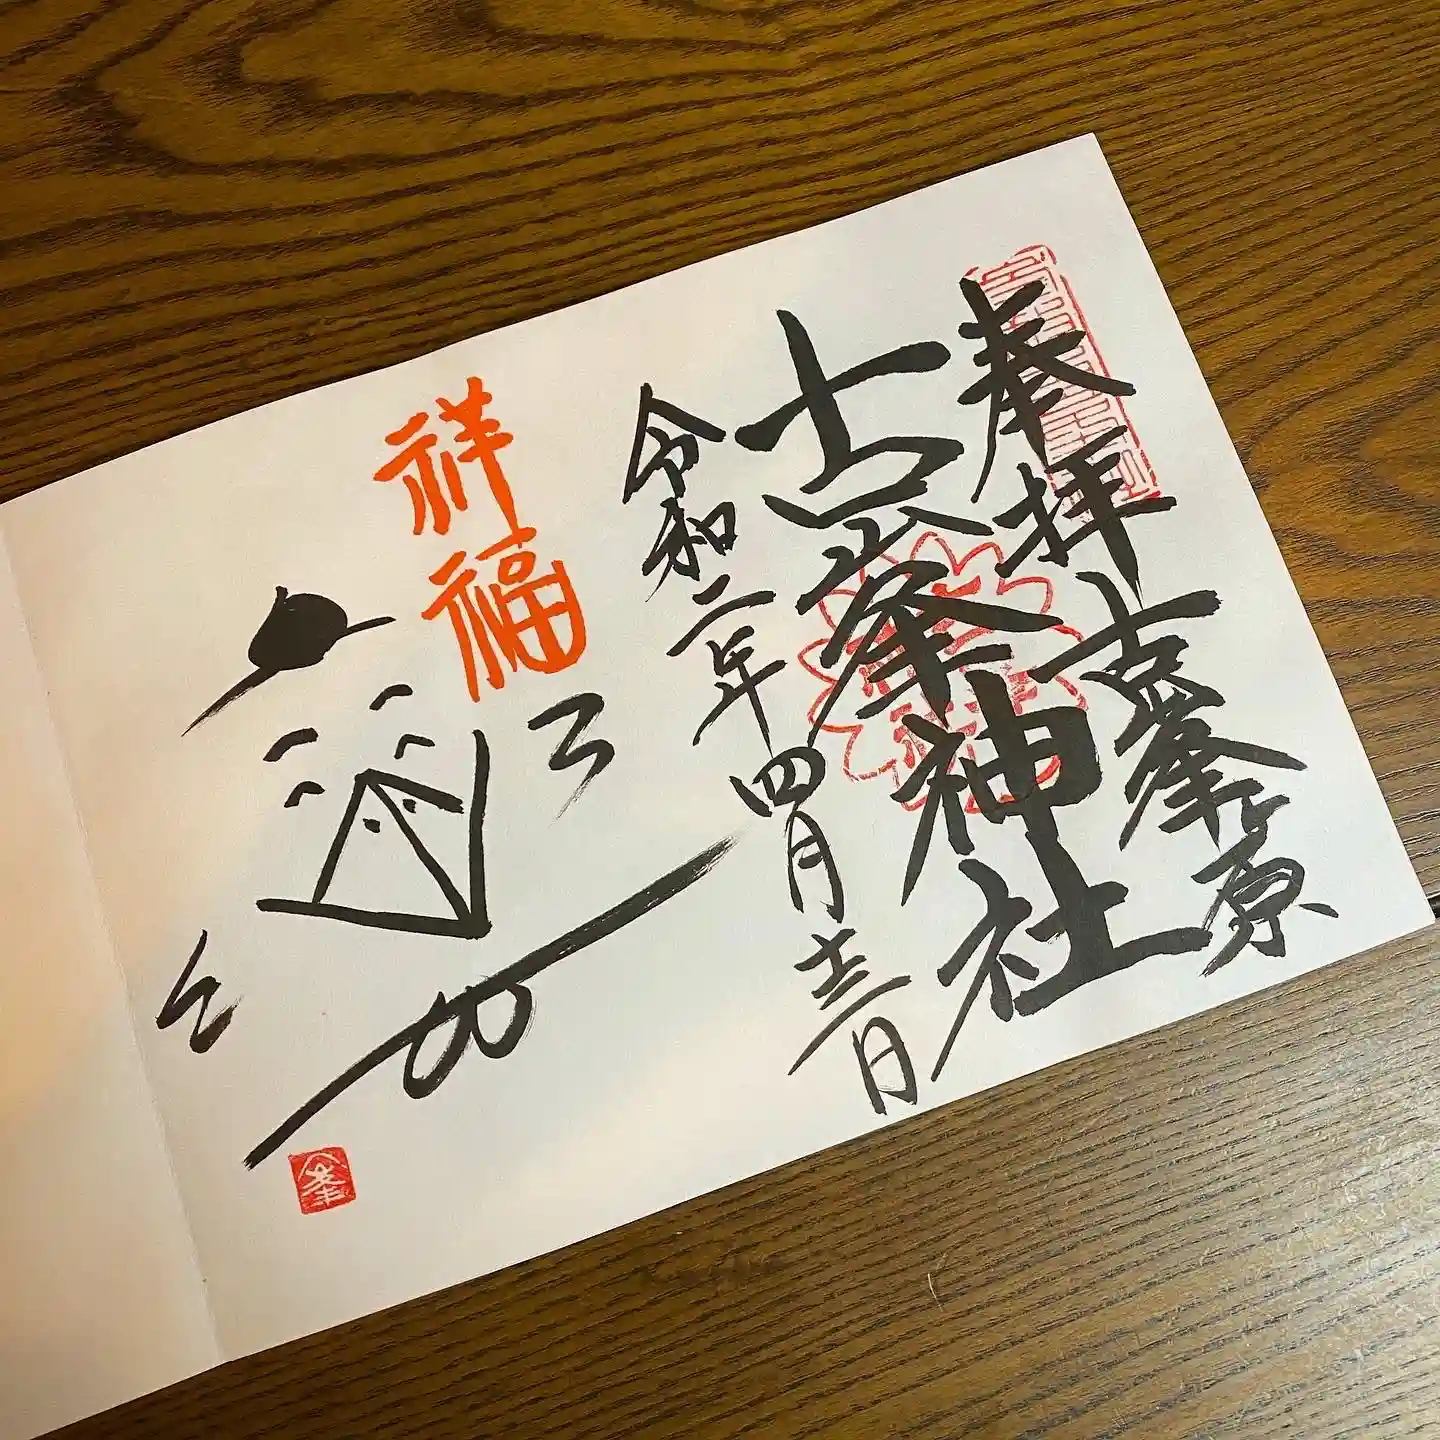 奉拝 古峯原
古峯神社
令和二年四月十三日
祥福
峯